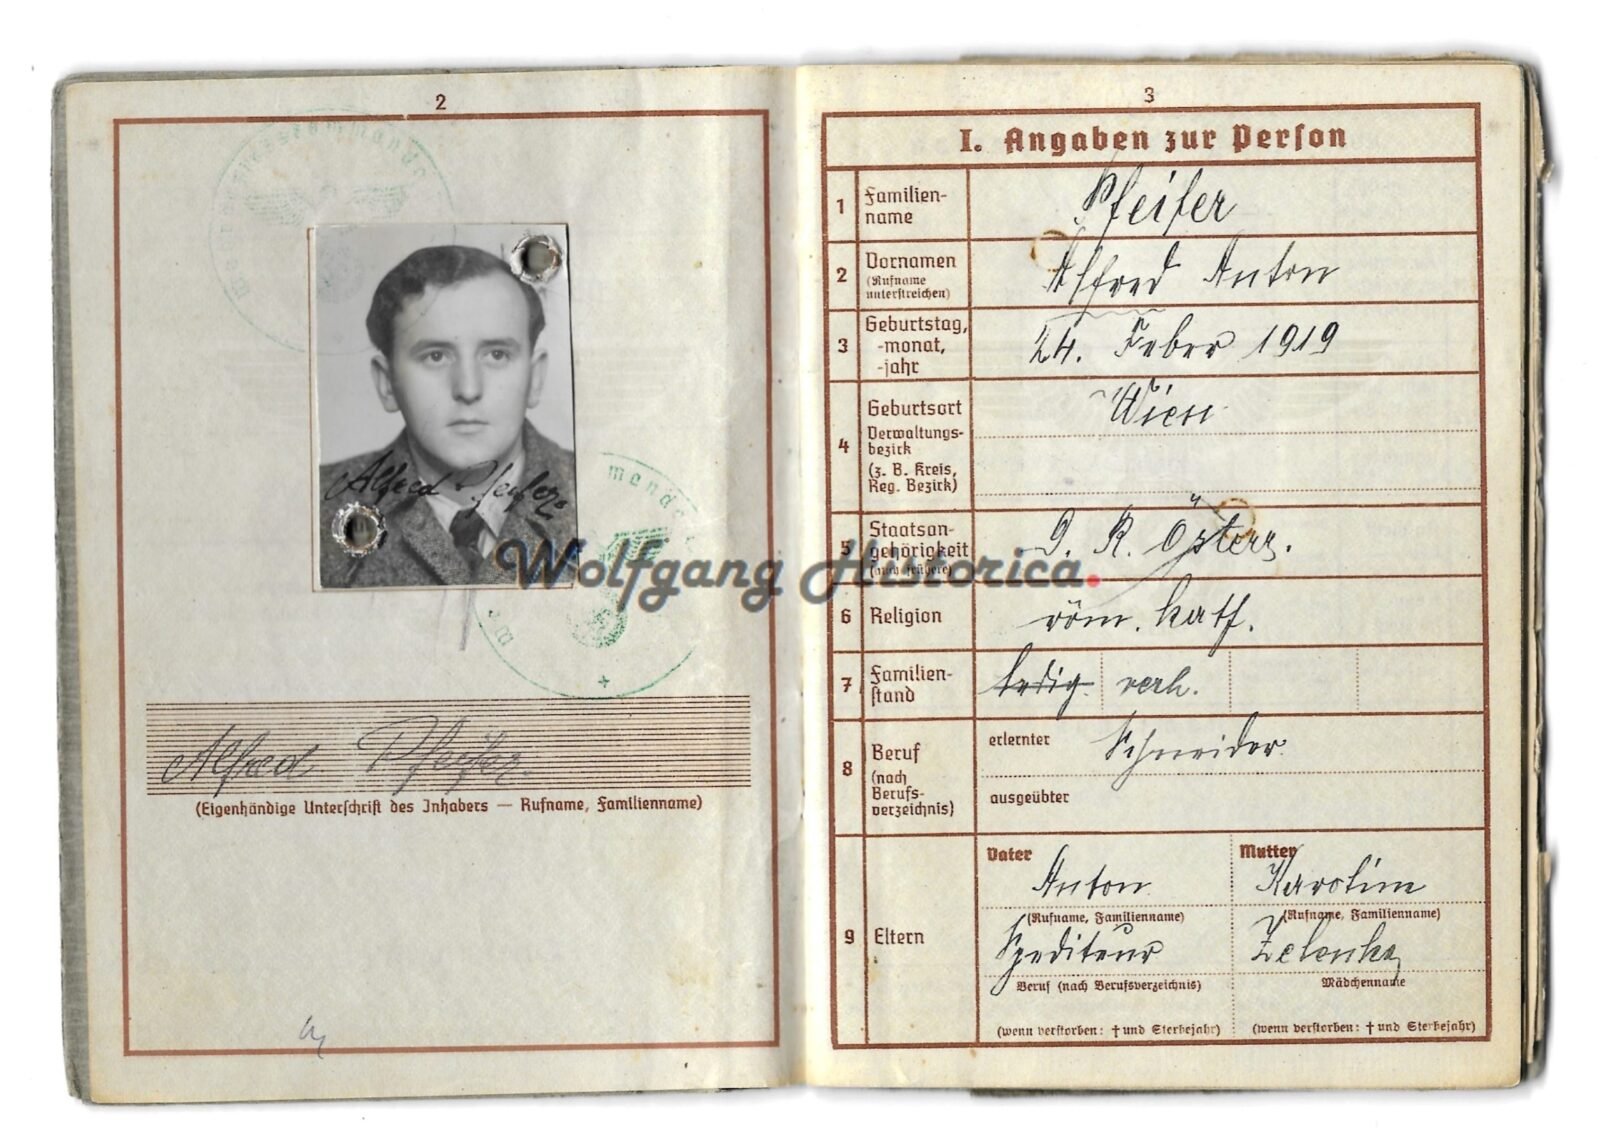 2
Wehrbezirkskommando
mando
Alfred Pfeifer
Wolfgang Historica.
Alfred Pfeifer.
(Eigenhändige Unterschrift des Inhabers — Rufname, Familienname)
3
I. Angaben zur Person
1 Familien-
name
Pfeifer
2 Vornamen
(Rufname
unterstreichen)
Alfred Anton
3 Geburtstag,
-monat,
-jahr
24. Feber 1919
4 Geburtsort
Verwaltungs-
bezirk
(z. B. Kreis,
Reg. Bezirk)
Wien
5 Staatsan-
gehörigkeit
(auch frühere)
D. R. Österr.
6 Religion
röm. kath.
7 Familien-
stand
ledig. verh.
8 Beruf
(nach
Berufs-
verzeichnis)
erlernter Schneider
ausgeübter
9 Eltern
Vater Mutter
Anton Karolina
(Rufname, Familienname) (Rufname, Familienname)
Spediteur Zelenka
Beruf (nach Berufsverzeichnis) Mädchenname
(wenn verstorben: † und Sterbejahr) (wenn verstorben: † und Sterbejahr)